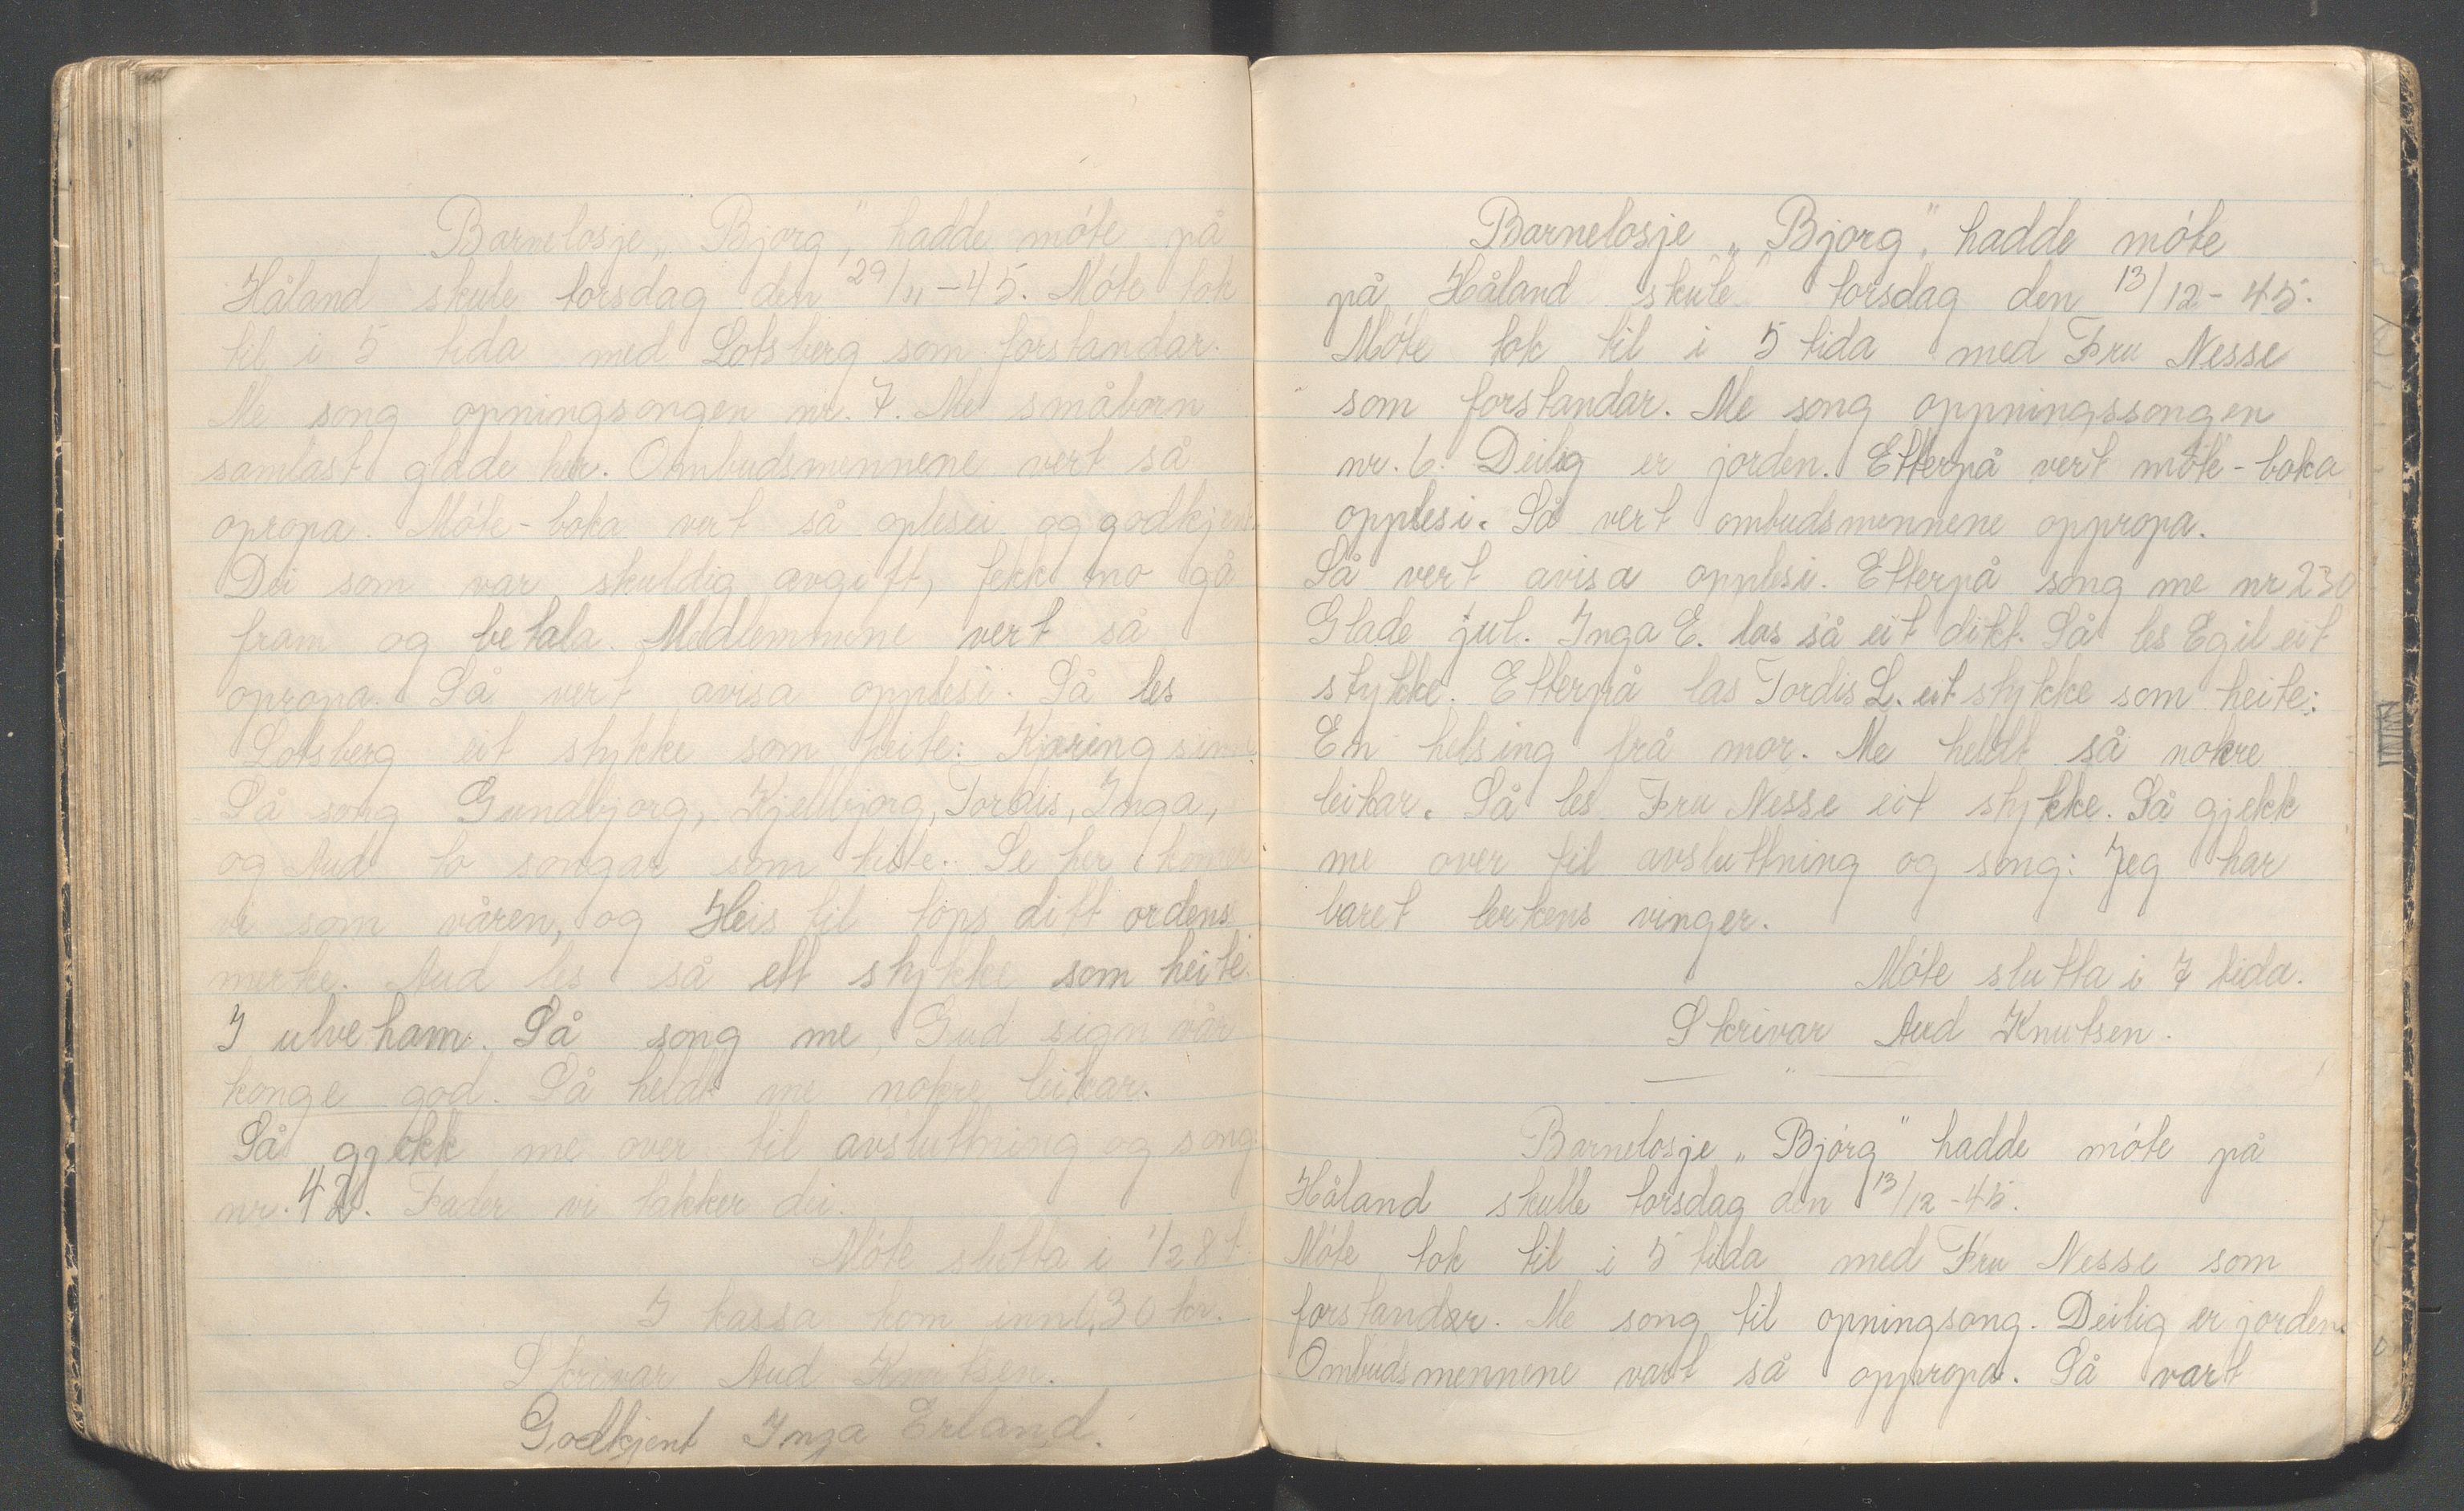 Barnelosje „Bjørg", hadde møte på
Håland skule torsdag den 29/11-45. Møte tok
til i 5 tida med Lotsberg som forstandar.
Me song opningsongen nr. 7. Me småborn
samlast glade her. Ombudsmennene vert så
opropa. Møte-boka vert så oplesei og godkjent.
Dei som var skuldig avgift, fekk no gå
fram og betala. Medlemmene vert så
opropa. Så vert avisa opplesi. Så les
Lotsberg eit stykke som heite: Kjæringsinn
Så song Gundbjørg, Kjellbjørg, Tordis, Inga,
og Aud to songar som heite: Se her komer
vi som våren, og Heis til tops ditt ordens
merke. Aud les så ett stykke som heite
I ulveham. Så song me, Gud sign vår
konge god. Så heldt me nokre leikar.
Så gjekk me over til avslutning og song
nr. 42. Fader vi takker dei.
Møte slutta i 1/2 8 t.
I kassa kom inn 0,30 kr.
Skrivar Aud Knutsen.
Godkjent Inga Erland.
Barnelosje „Bjørg", hadde møte
på Håland skule torsdag den 13/12-45.
Møte tok til i 5 tida med Fru Nesse
som forstandar. Me song oppningssongen
nr. 6. Deilig er jorden. Etterpå vert møte-boka
opplesi. Så vert ombudsmennene oppropa.
Så vert avisa opplesi. Etterpå song me nr 230
Glade jul. Inga E. las så eit dikt. Så les Egil eit
stykke. Etterpå las Tordis L. eit stykke som heite:
En helsing frå mor. Me heldt så nokre
leikar. Så les Fru Nesse eit stykke. Så gjekk
me over til avsluttning og song: Jeg har
baret lerkens vinger.
Møte slutta i 7 tida.
Skrivar Aud Knutsen.
Barnelosje „Bjørg" hadde møte på
Håland skulle torsdag den 13/12-45.
Møte tok til i 5 tida med Fru Nesse som
forstandar. Me song til opningsong. Deilig er jorden.
Ombudsmennene vart så oppropa. Så vart